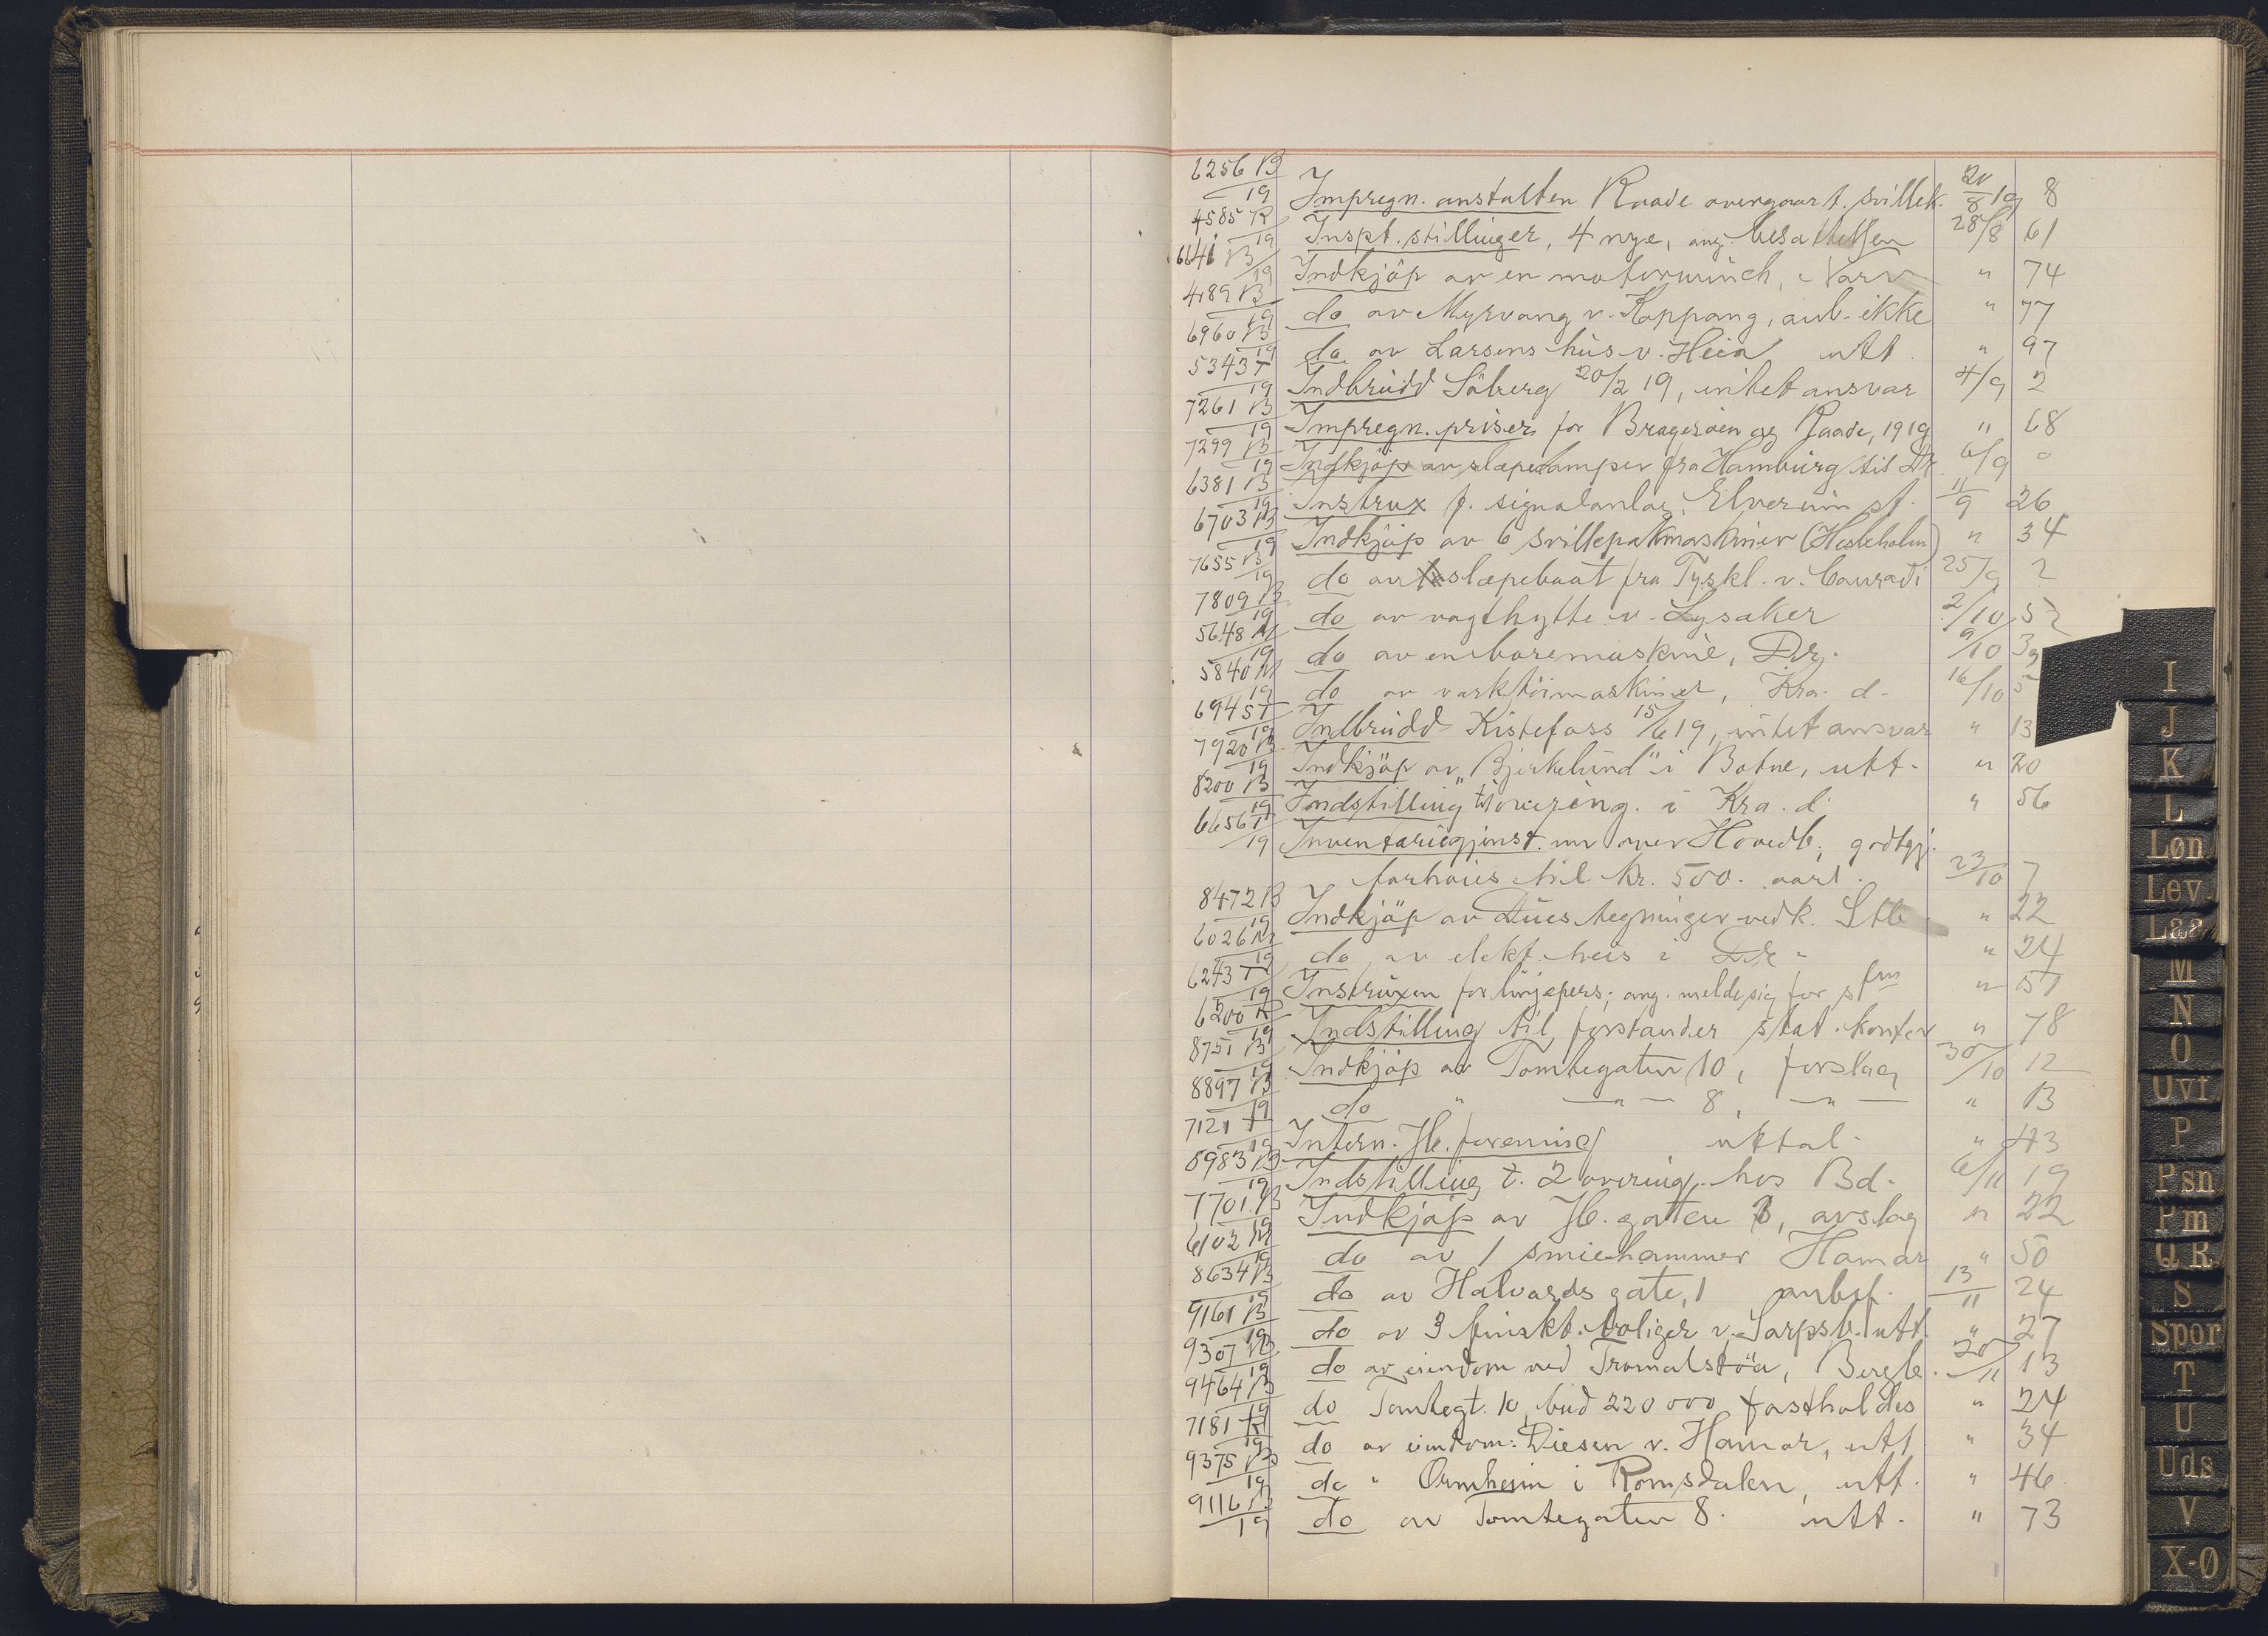 6256 B/19 Impregn. anstalten Raade overgaar t. svillek. 20/8 19 8
4585 R/19 Inspt. stillinger, 4 nye, ang. besættelsen 28/8 61
6641 B/19 Indkjöp av en motorwinch, Narv " 74
4189 B/19 do av Myrvang v. Koppang, anb. ikke " 77
6960 B/19 do av Larsens hus v. Heia utt " 97
5343 T/19 Indbrudd Söberg 20/2 19, intet ansvar 4/9 2
7261 B/19 Impregn. priser for Bragerøen og Raade, 1919 " 68
7299 B/19 Indkjöp av slæpedamper fra Hamburg til Dr. 6/9 0
6381 B/19 Instrux f. signalanlæg, Elverum st. 11/9 26
6703 B/19 Indkjöp av 6 svillepakmaskiner (Hesleholm) " 34
7655 B/19 do av slæpebaat fra Tyskl. v. Conradi 25/9 2
7809 B/19 do av vagthytte v. Lysaker 2/10 52
5648 M/19 do av en boremaskine, Drg. 9/10 39
5840 M/19 do av verktöimaskiner, Kra. d. 16/10 5
6945 T/19 Indbrudd Kistefoss 15/6 19, intet ansvar " 13
7920 B/19 Indkjöp av "Bjerkelund" i Botne, utt. " 20
8200 B/19 Indstilling til overing. i Kra. d. " 56
6656 T/19 Inventariegjenst. nr over Hovedb., godtgj.
forhöies til kr. 500. aarl. 23/10 7
8472 B/19 Indkjöp av Dues tegninger vedk. Stb " 22
6026 M/19 do av elekt. heis i Dr. " 24
6243 T/19 Instruxen for linjepers. ang. melde sig for sfm " 57
6200 R/19 Indstilling til forstander stat. kontor " 78
8751 B/19 Indkjöp av Tomtegaten 10, forslag 30/10 12
8897 B/19 do " —"— 8, —"— " 13
7121 T/19 Intern. Jb. forening uttal. " 43
8983 B/19 Indstilling t. 2 overing. hos Bd. 6/11 19
7701 B/19 Indkjöp av Jb. gaten 3, avslag " 22
6102 M/19 do av 1 smiehammer Hamar " 50
8634 B/19 do av Halvards gate, 1 anbef. 13/11 24
9161 B/19 do av 3 funkt. boliger v. Sarpsb. utt. " 27
9307 B/19 do av eiendom ved Tromalstöa, Bergb. 20/11 13
9464 B/19 do Tomtegt. 10, bud 220 000 fastholdes " 24
7181 R/19 do av eiendom: Diesen v. Hamar, utt " 34
9375 B/19 do " Ormheim i Romsdalen, utt. " 46
9116 B/19 do av Tomtegaten 8. utt. " 73
I
J
K
L
Løn
Lev.
Laa
M
N
O
Ovf
P
Psn
Pm
Q R
S
Spor
T
U
Uds
V
X-Ø